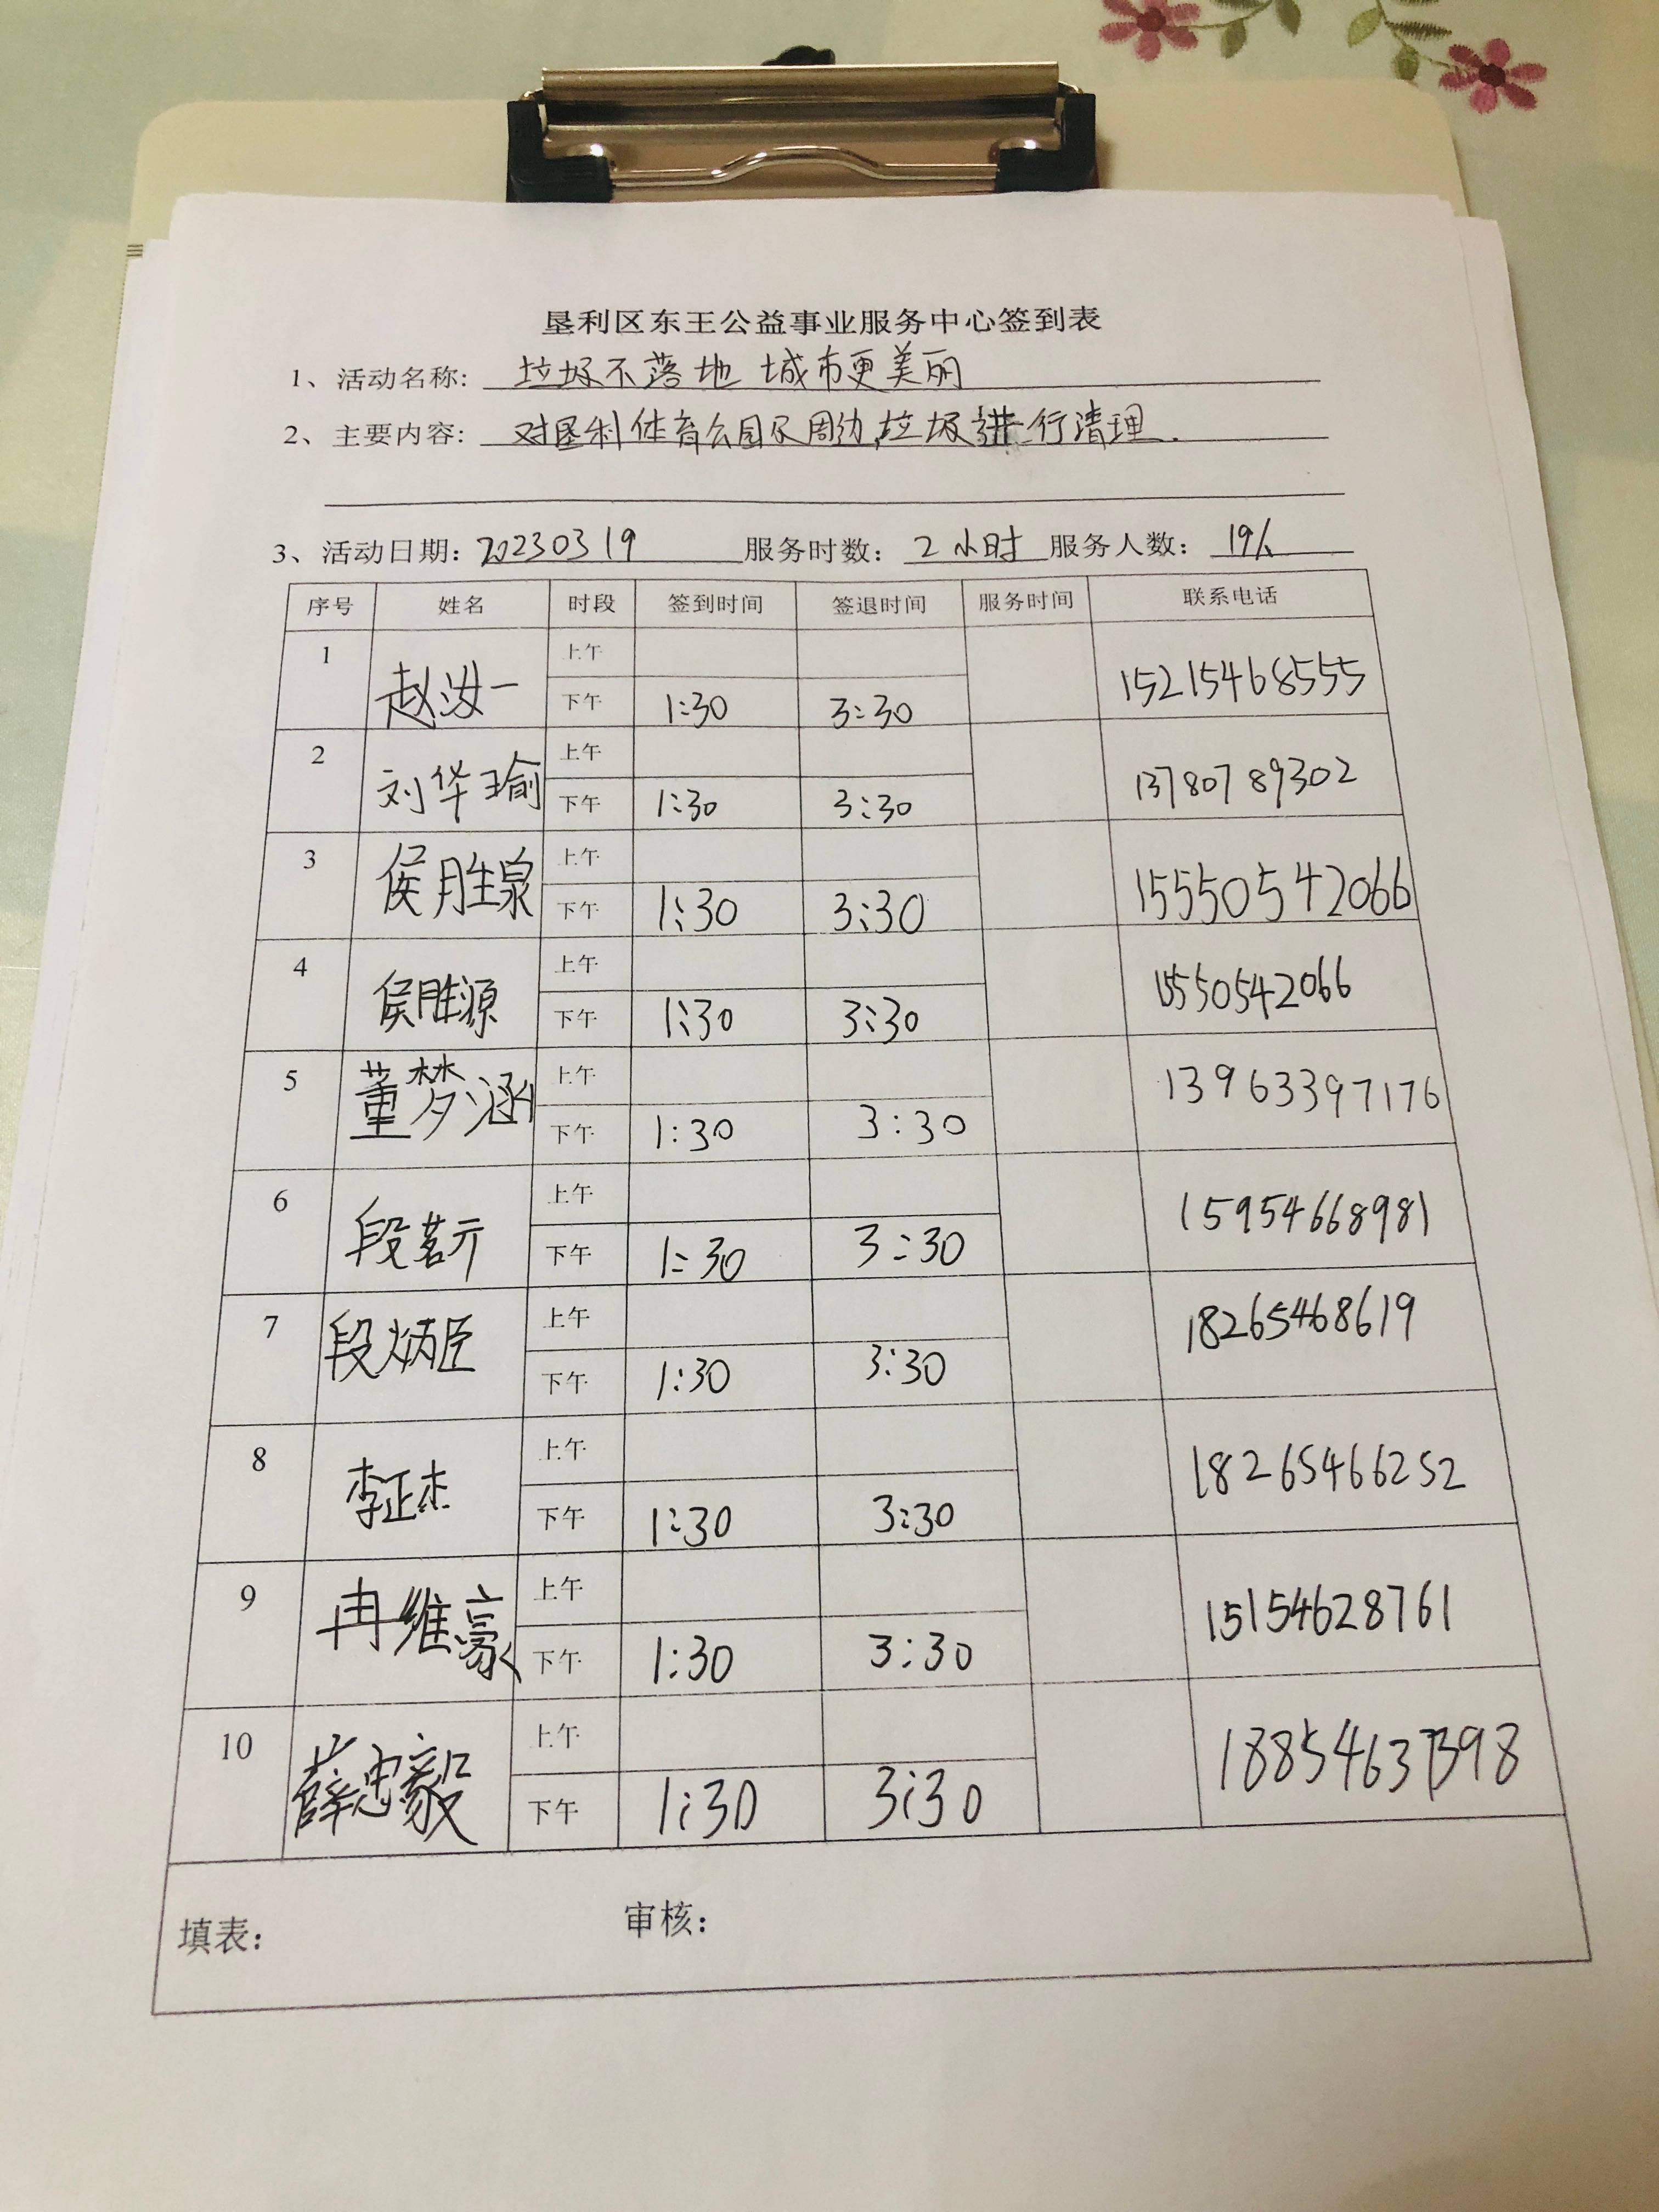 垦利区东王公益事业服务中心签到表
1、活动名称: 垃圾不落地 城市更美丽
2、主要内容: 对垦利体育公园及周边垃圾进行清理.
3、活动日期: 20230319 服务时数: 2小时 服务人数: 19人
序号 姓名 时段 签到时间 签退时间 服务时间 联系电话
1 赵汝一 上午
下午 1:30 3:30 15215468555
2 刘华瑜 上午
下午 1:30 3:30 13780789302
3 侯胜泉 上午
下午 1:30 3:30 15550542066
4 侯胜源 上午
下午 1:30 3:30 15550542066
5 董梦涵 上午
下午 1:30 3:30 13963397176
6 段茗亓 上午
下午 1:30 3:30 15954668981
7 段炳臣 上午
下午 1:30 3:30 18265468619
8 李正杰 上午
下午 1:30 3:30 18265466252
9 冉维豪 上午
下午 1:30 3:30 15154628761
10 薛忠毅 上午
下午 1:30 3:30
填表: 审核: